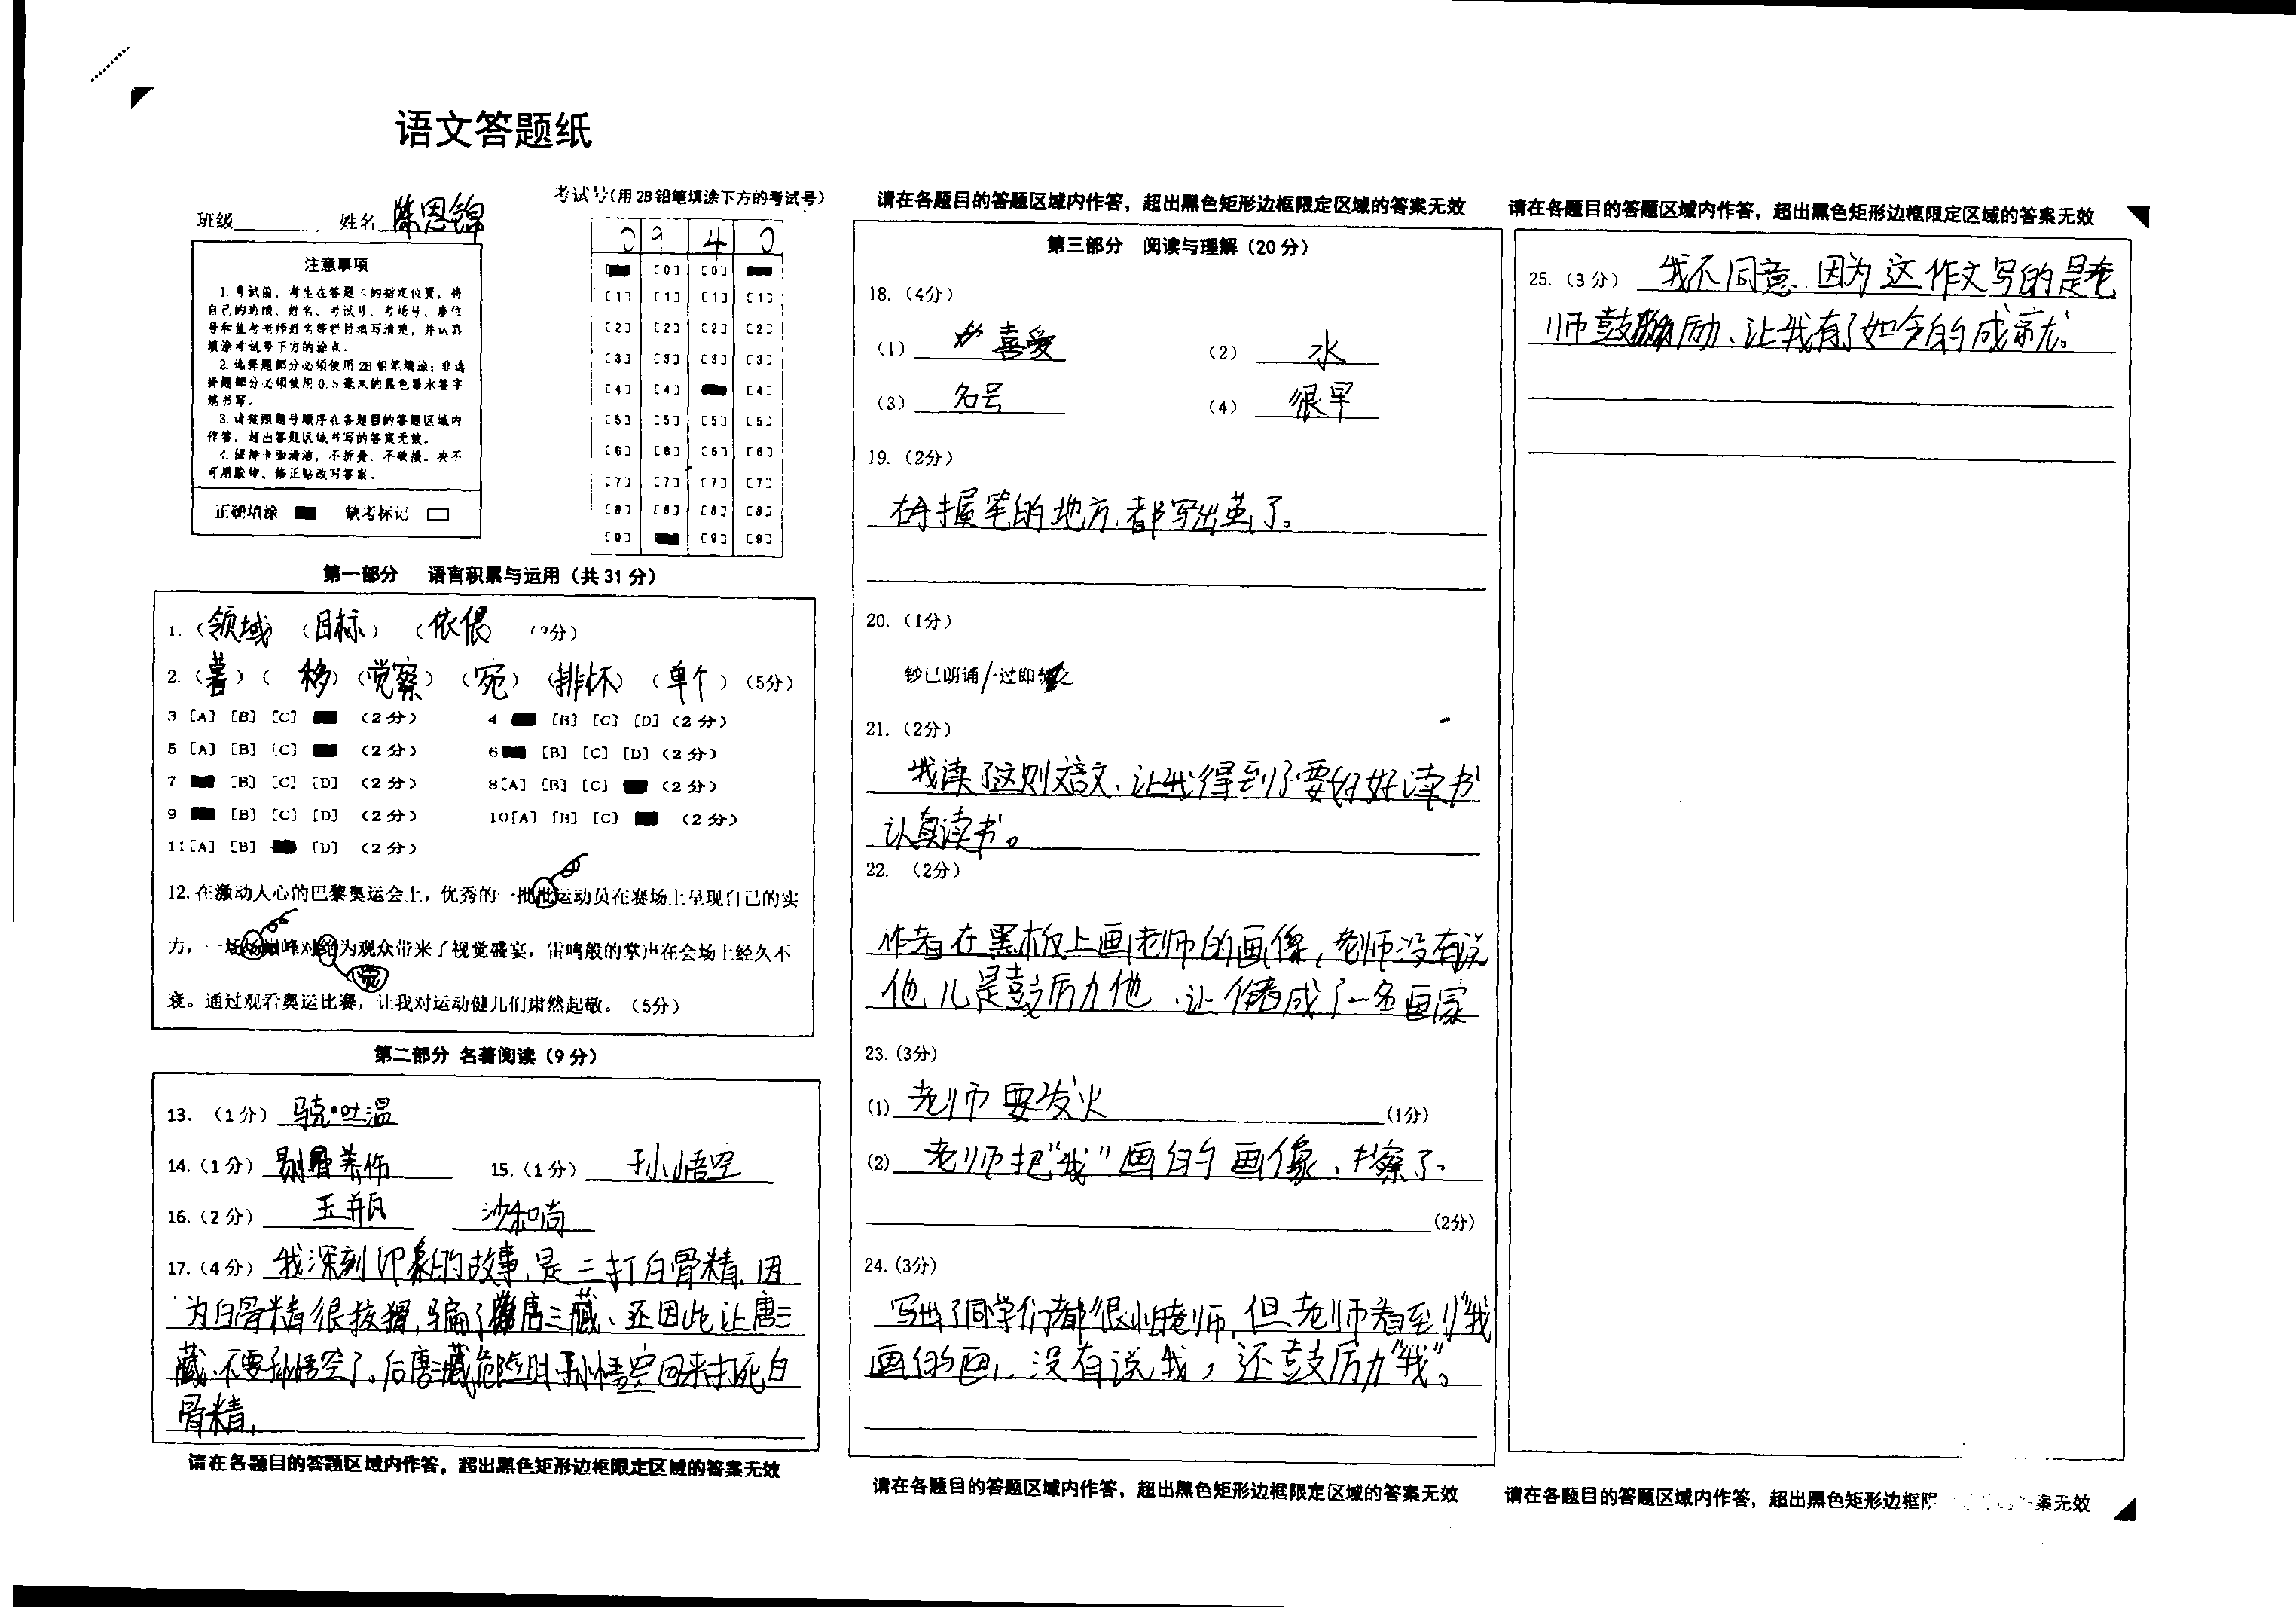 语文答题纸
班级 姓名 陈恩锦
考试号(用2B铅笔填涂下方的考试号)
0 9 4 0
注意事项
1. 考试前，考生在答题卡的指定位置，将
自己的班级、姓名、考试号、考场号、座位
号和监考老师姓名等栏目填写清楚，并认真
填涂考试号下方的涂点。
2. 选择题部分必须使用2B铅笔填涂；非选
择题部分必须使用0.5毫米的黑色墨水签字
笔书写。
3. 请按照题号顺序在各题目的答题区域内
作答，超出答题区域书写的答案无效。
4. 保持卡面清洁，不折叠、不破损。决不
可用胶带、修正贴改写答案。
正确填涂 缺考标记
[0] [0]
[1] [1] [1] [1]
[2] [2] [2] [2]
[3] [3] [3] [3]
[4] [4] [4]
[5] [5] [5] [5]
[6] [6] [6] [6]
[7] [7] [7] [7]
[8] [8] [8] [8]
[9] [9] [9]
第一部分 语言积累与运用（共31分）
1.（领域）（目标）（依偎
2.（薯）（移）（觉察）（宛）（排怀）（单个）（5分）
3 [A] [B] [C] （2分） 4 [B] [C] [D]（2分）
5 [A] [B] [C] （2分） 6 [B] [C] [D]（2分）
7 [B] [C] [D] （2分） 8[A] [B] [C] （2分）
9 [B] [C] [D] （2分） 10[A] [B] [C] （2分）
11[A] [B] [D] （2分）
12.在激动人心的巴黎奥运会上，优秀的一批批运动员在赛场上呈现自己的实
力，一场场巅峰对绝为观众带来了视觉盛宴，雷鸣般的掌声在会场上经久不
衰。通过观看奥运比赛，让我对运动健儿们肃然起敬。（5分）
第二部分 名著阅读（9分）
13.（1分）骑·吐温
14.（1分） 15.（1分）孙悟空
16.（2分） 沙和尚
17.（4分）我深刻印象的故事，是三打白骨精、因
为白骨精很狡猾，骗了唐三藏、还因此让唐三
藏、不要孙悟空了。后唐三藏危险时孙悟空回来打死白
骨精，
请在各题目的答题区域内作答，超出黑色矩形边框限定区域的答案无效
请在各题目的答题区域内作答，超出黑色矩形边框限定区域的答案无效
第三部分 阅读与理解（20分）
18.（4分）
（1）喜爱 （2）水
（3）名号 （4）很早
19.（2分）
在握笔的地方，都写出茧了。
20.（1分）
钞已朗诵/一过即
21.（2分）
我读了这则文言文、让我得到了要好好读书
认真读书。
22.（2分）
作者在黑板上画老师的画像，老师没有说
他，儿是鼓励他，让作者成了一名画家
23.（3分）
(1) 老师要发火 (1分)
(2) 老师把“我”画的画像，擦了。
(2分)
24.（3分）
写出了同学们都很怕老师，但老师看到“我
画的画，没有说我，还鼓厉力“我”。
请在各题目的答题区域内作答，超出黑色矩形边框限定区域的答案无效
请在各题目的答题区域内作答，超出黑色矩形边框限定区域的答案无效
25.（3分）我不同意、因为这作文写的是老
师鼓励、让我有了如今的成就。
请在各题目的答题区域内作答，超出黑色矩形边框 案无效